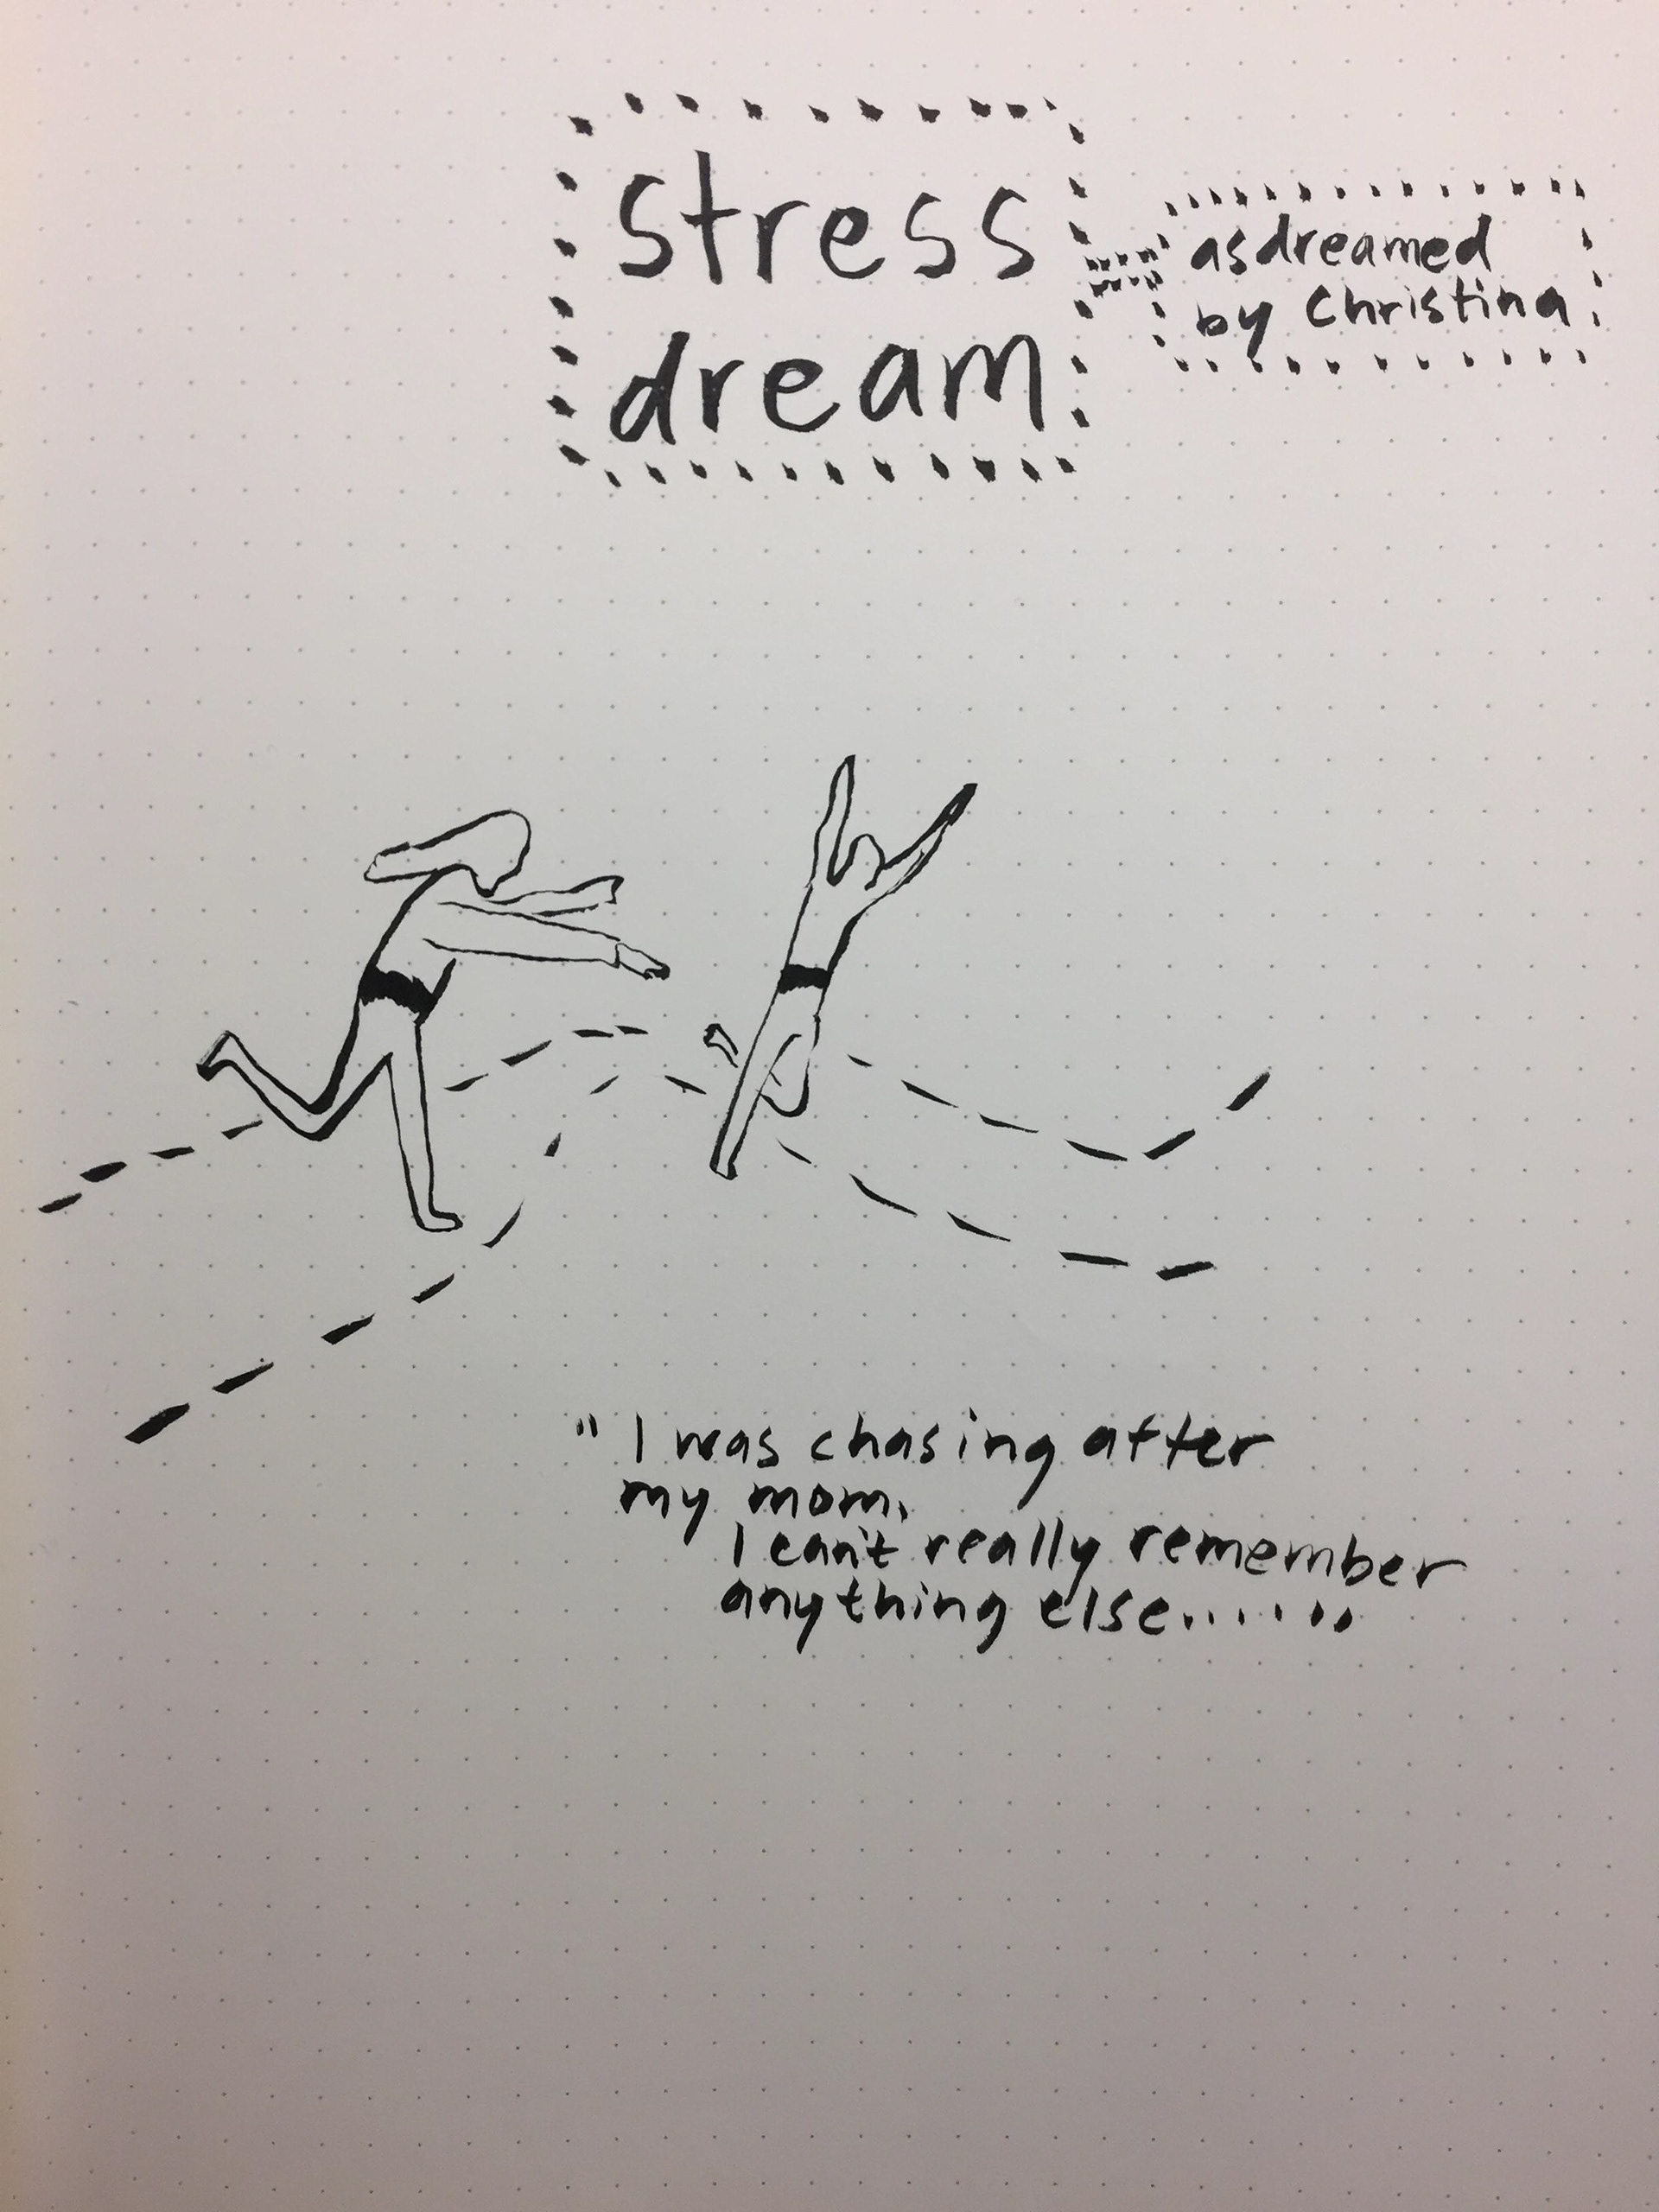 stress
dream
asdreamed
by Christina
" I was chasing after
my mom.
I can't really remember
anything else.......